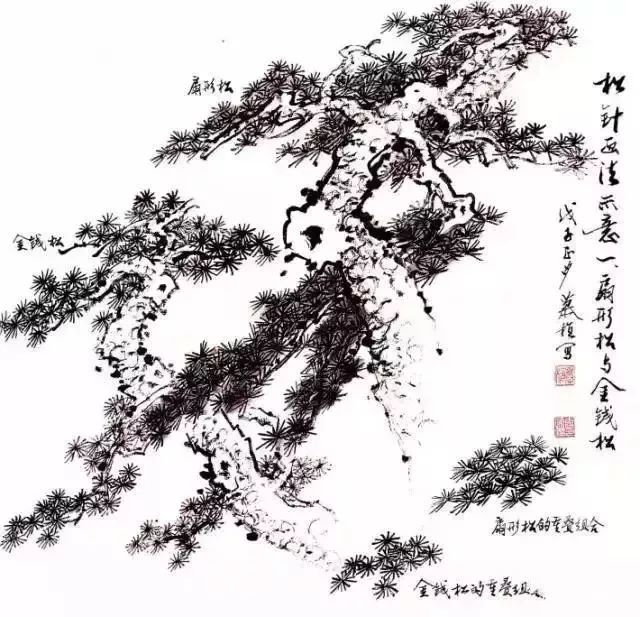 松针画法示意一、扇形松与金钱松
戊子正夕
写
扇形松
金钱松
扇形松的重叠组合
金钱松的重叠组合